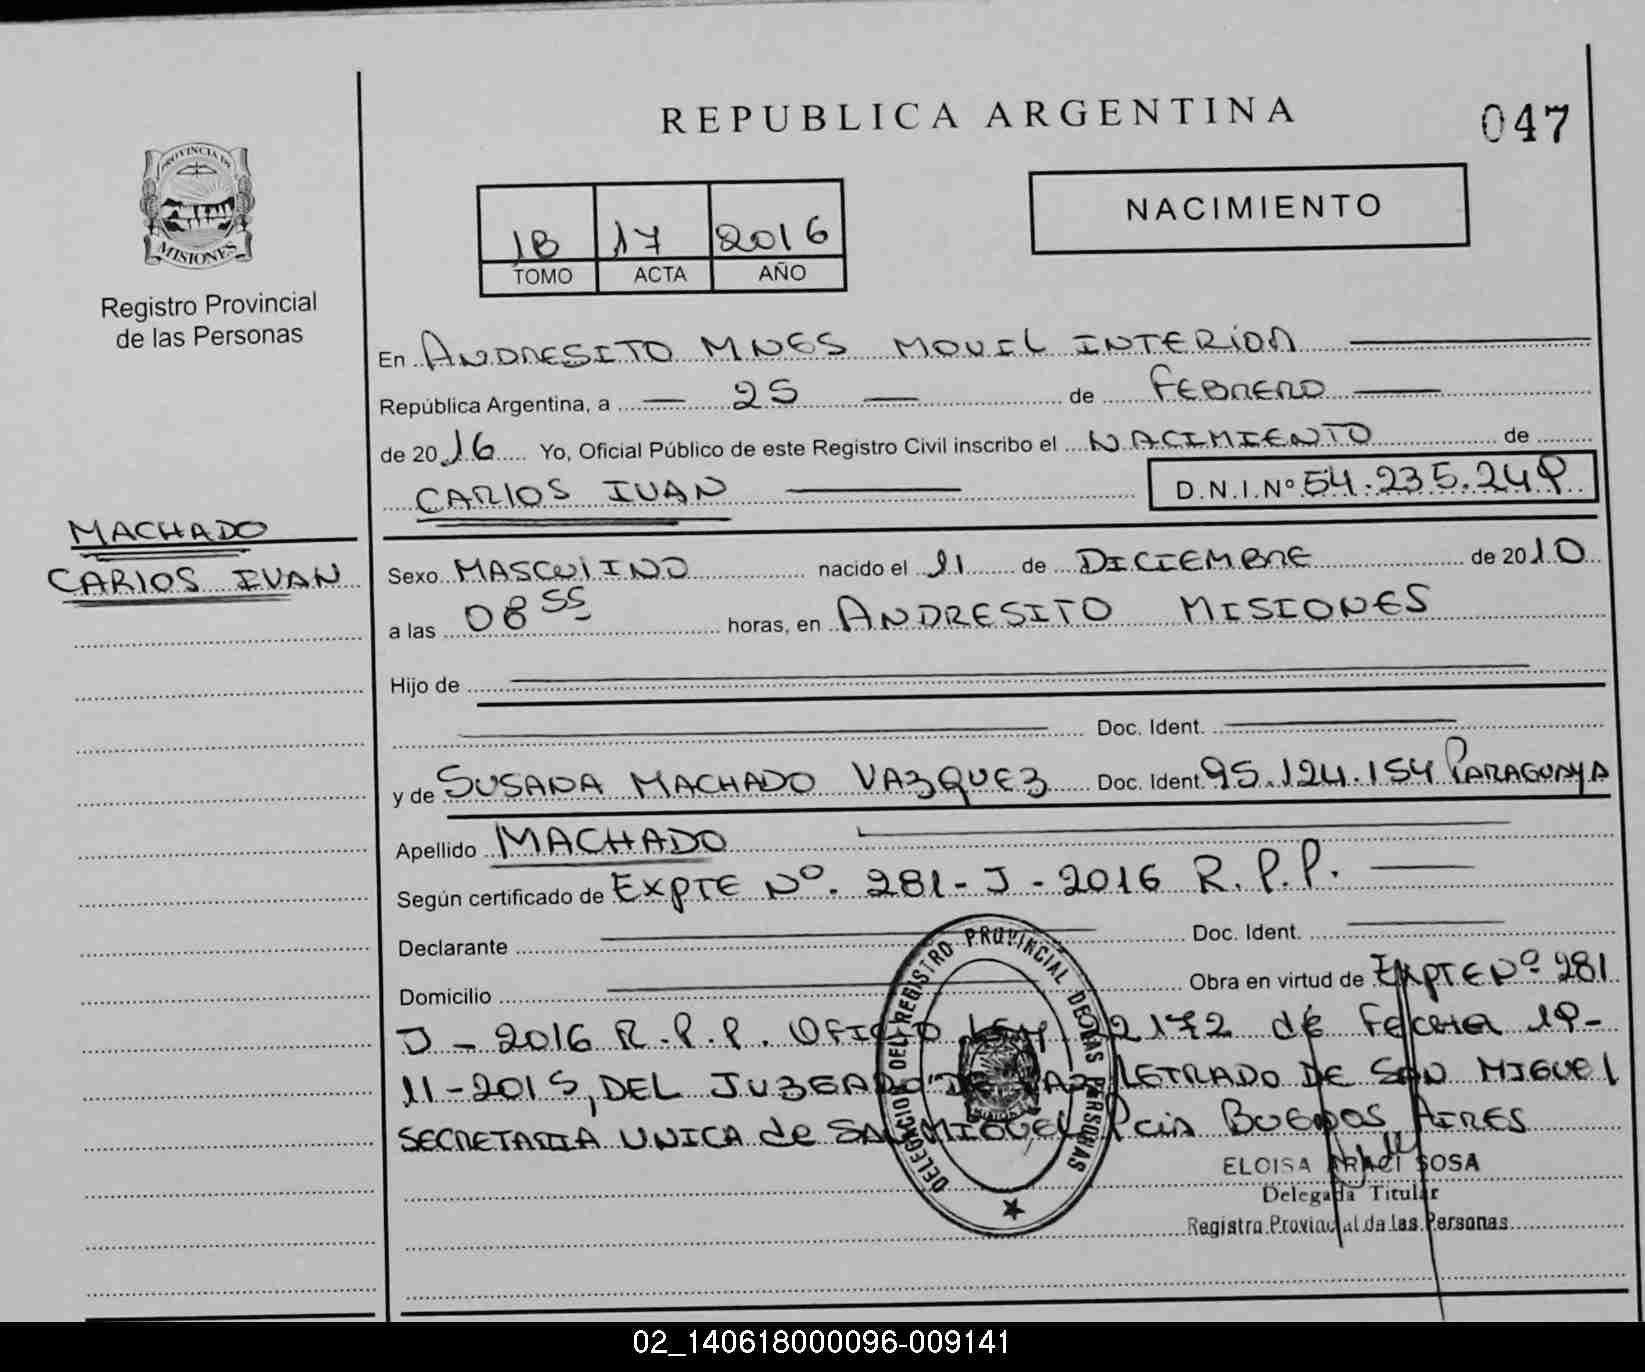 REPUBLICA ARGENTINA
047
PROVINCIA DE
MISIONES
Registro Provincial
de las Personas
1B 17 2016
TOMO ACTA AÑO
NACIMIENTO
En ANDRESITO MNES MOVIL INTERIOR
República Argentina, a — 25 — de FEBRERO
de 2016 Yo, Oficial Público de este Registro Civil inscribo el NACIMIENTO de
CARLOS IVAN D.N.I.Nº 54.235.249
MACHADO
CARLOS IVAN
Sexo MASCULINO nacido el 11 de DICIEMBRE de 2010
a las 08 55 horas, en ANDRESITO MISIONES
Hijo de
Doc. Ident.
y de SUSANA MACHADO VAZQUEZ Doc. Ident. 95.124.154 PARAGUAYA
Apellido MACHADO
Según certificado de EXPTE Nº. 281-J-2016 R.P.P.
Declarante Doc. Ident.
Domicilio Obra en virtud de EXPTE Nº 281
J - 2016 R.P.P. OFICIO 2172 de Fecha 19-
11-2015, DEL JUZGADO DE PAZ LETRADO DE SAN MIGUEL
SECRETARIA UNICA de SAN MIGUEL Pcia BUENOS AIRES
DELEGACIO DEL REGISTRO PROVINCIAL DE LAS PERSONAS
MISIONES
ELOISA ARACI SOSA
Delegada Titular
Registro Provincial de las Personas
02_140618000096-009141